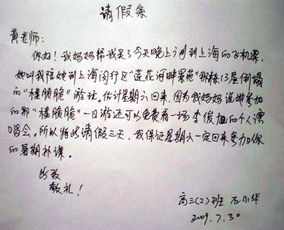 请假条
黄老师：
你好！我妈妈帮我买了今天晚上广州到上海的飞机票，
她叫我陪她到上海闵行区"莲花河畔景苑"那栋13层倒塌
的"楼脆脆"游玩，估计星期六回来，因为我妈妈说参加
的那"楼脆脆"一日游还可以免费看一场李俊 的个人演
唱会，所以特此请假三天，我保证星期六一定回来参加你
的暑期补课。
此致
敬礼！
高三(2)班 小华
2009.7.30